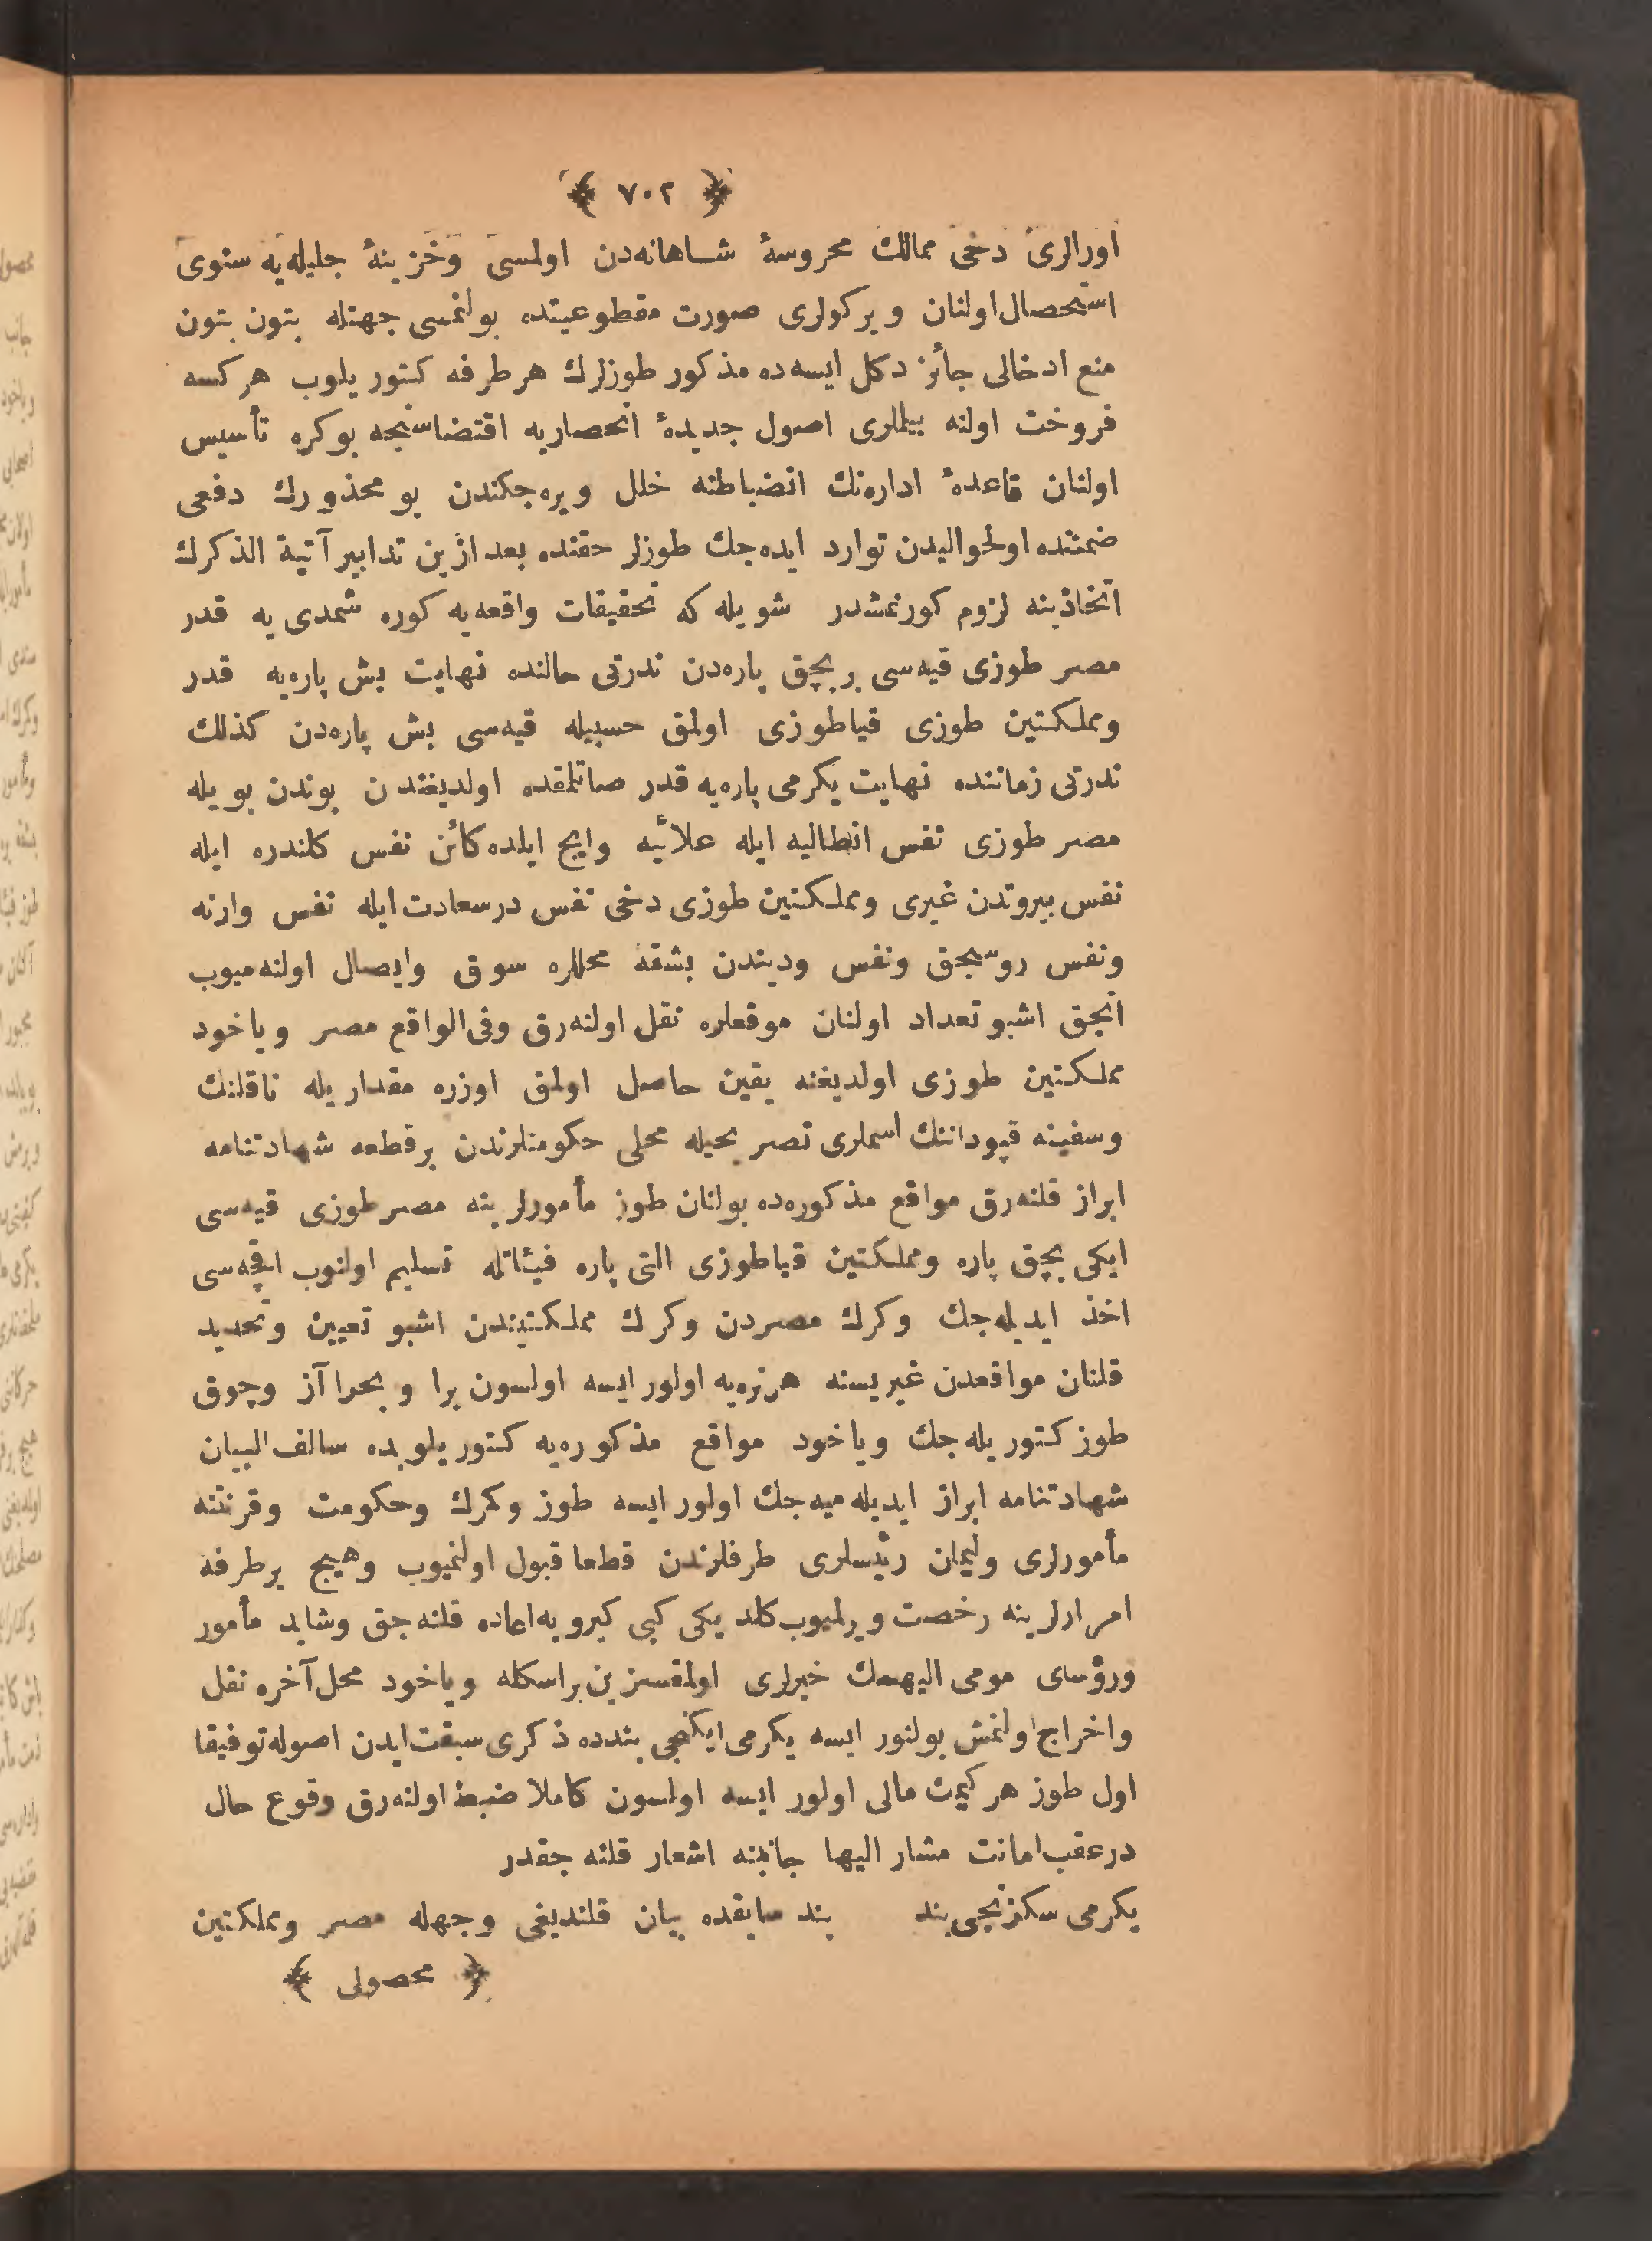 ﴿ ٧٠٢ ﴾
اورالری دخی ممالك محروسهٔ شاهانه‌دن اولمسی وخزینهٔ جلیله‌یه سنوی
استحصال اولنان ویركولری صورت مقطوعیتده بولنمسی جهتله بتون بتون
منع ادخالی جائز دكل ایسه‌ده مذكور طوزلرك هر طرفه كتوریلوب هر كسه
فروخت اولنه بیللری اصول جدیدهٔ انحصاریه اقتضاسنجه بو كره تأسیس
اولنان قاعدهٔ اداره‌نك انضباطنه خلل ویره‌جكندن بو محذورك دفعی
ضمننده اولحوالیدن توارد ایده‌جك طوزلر حقنده بعد ازین تدابیر آتیة الذكرك
اتخاذینه لزوم كورنمشدر شویله كه تحقیقات واقعه‌یه كوره شمدی یه قدر
مصر طوزی قیه‌سی بر بچق پاره‌دن ندرتی حالنده نهایت بش پاره‌یه قدر
ومملكتین طوزی قیا طوزی اولمق حسبیله قیه‌سی بش پاره‌دن كذلك
ندرتی زماننده نهایت یكرمی پاره‌یه قدر صاتلمقده اولدیغندن بوندن بویله
مصر طوزی نفس انطالیه ایله علائیه وایج ایلده كائن نفس كلندره ایله
نفس بیروتدن غیری ومملكتین طوزی دخی نفس درسعادت ایله نفس وارنه
ونفس روسجق ونفس ودیندن بشقه محللره سوق وایصال اولنه‌میوب
انجق اشبو تعداد اولنان موقعلره نقل اولنه‌رق وفی‌الواقع مصر ویاخود
مملكتین طوزی اولدیغنه یقین حاصل اولمق اوزره مقداریله ناقلنك
وسفینه قپوداننك اسملری تصریحیله محلی حكومتلرندن بر قطعه شهادتنامه
ابراز قلنه‌رق مواقع مذكوره‌ده بولنان طوز مأمورلرینه مصر طوزی قیه‌سی
ایكی بچق پاره ومملكتین قیا طوزی التی پاره فیئاتله تسلیم اولنوب اقچه‌سی
اخذ ایدیله‌جك وكرك مصردن وكرك مملكتیندن اشبو تعیین وتحدید
قلنان مواقعدن غیریسنه هر نره‌یه اولور ایسه اولسون برا وبحرا آز وچوق
طوز كتوریله‌جك ویاخود مواقع مذكوره‌یه كتوریلوبده سالف البیان
شهادتنامه ابراز ایدیله‌میه‌جك اولور ایسه طوز وكمرك وحكومت وقرنتنه
مأمورلری ولیمان رئیسلری طرفلرندن قطعا قبول اولنمیوب وهیچ بر طرفه
امرارلرینه رخصت ویرلمیوب كلدیكی كبی كیرویه اعاده قلنه‌جق وشاید مأمور
ورؤسای مومی الیهمك خبرلری اولمقسزین بر اسكله ویاخود محل آخره نقل
واخراج اولنمش بولنور ایسه یكرمی ایكنجی بندده ذكری سبقت ایدن اصوله توفیقا
اول طوز هر كیمك مالی اولور ایسه اولسون كاملا ضبط اولنه‌رق وقوع حال
در عقب امانت مشار الیها جانبنه اشعار قلنه جقدر
یكرمی سكزنجی بند بند سابقده بیان قلندیغی وجهله مصر ومملكتین
﴿ محصولی ﴾